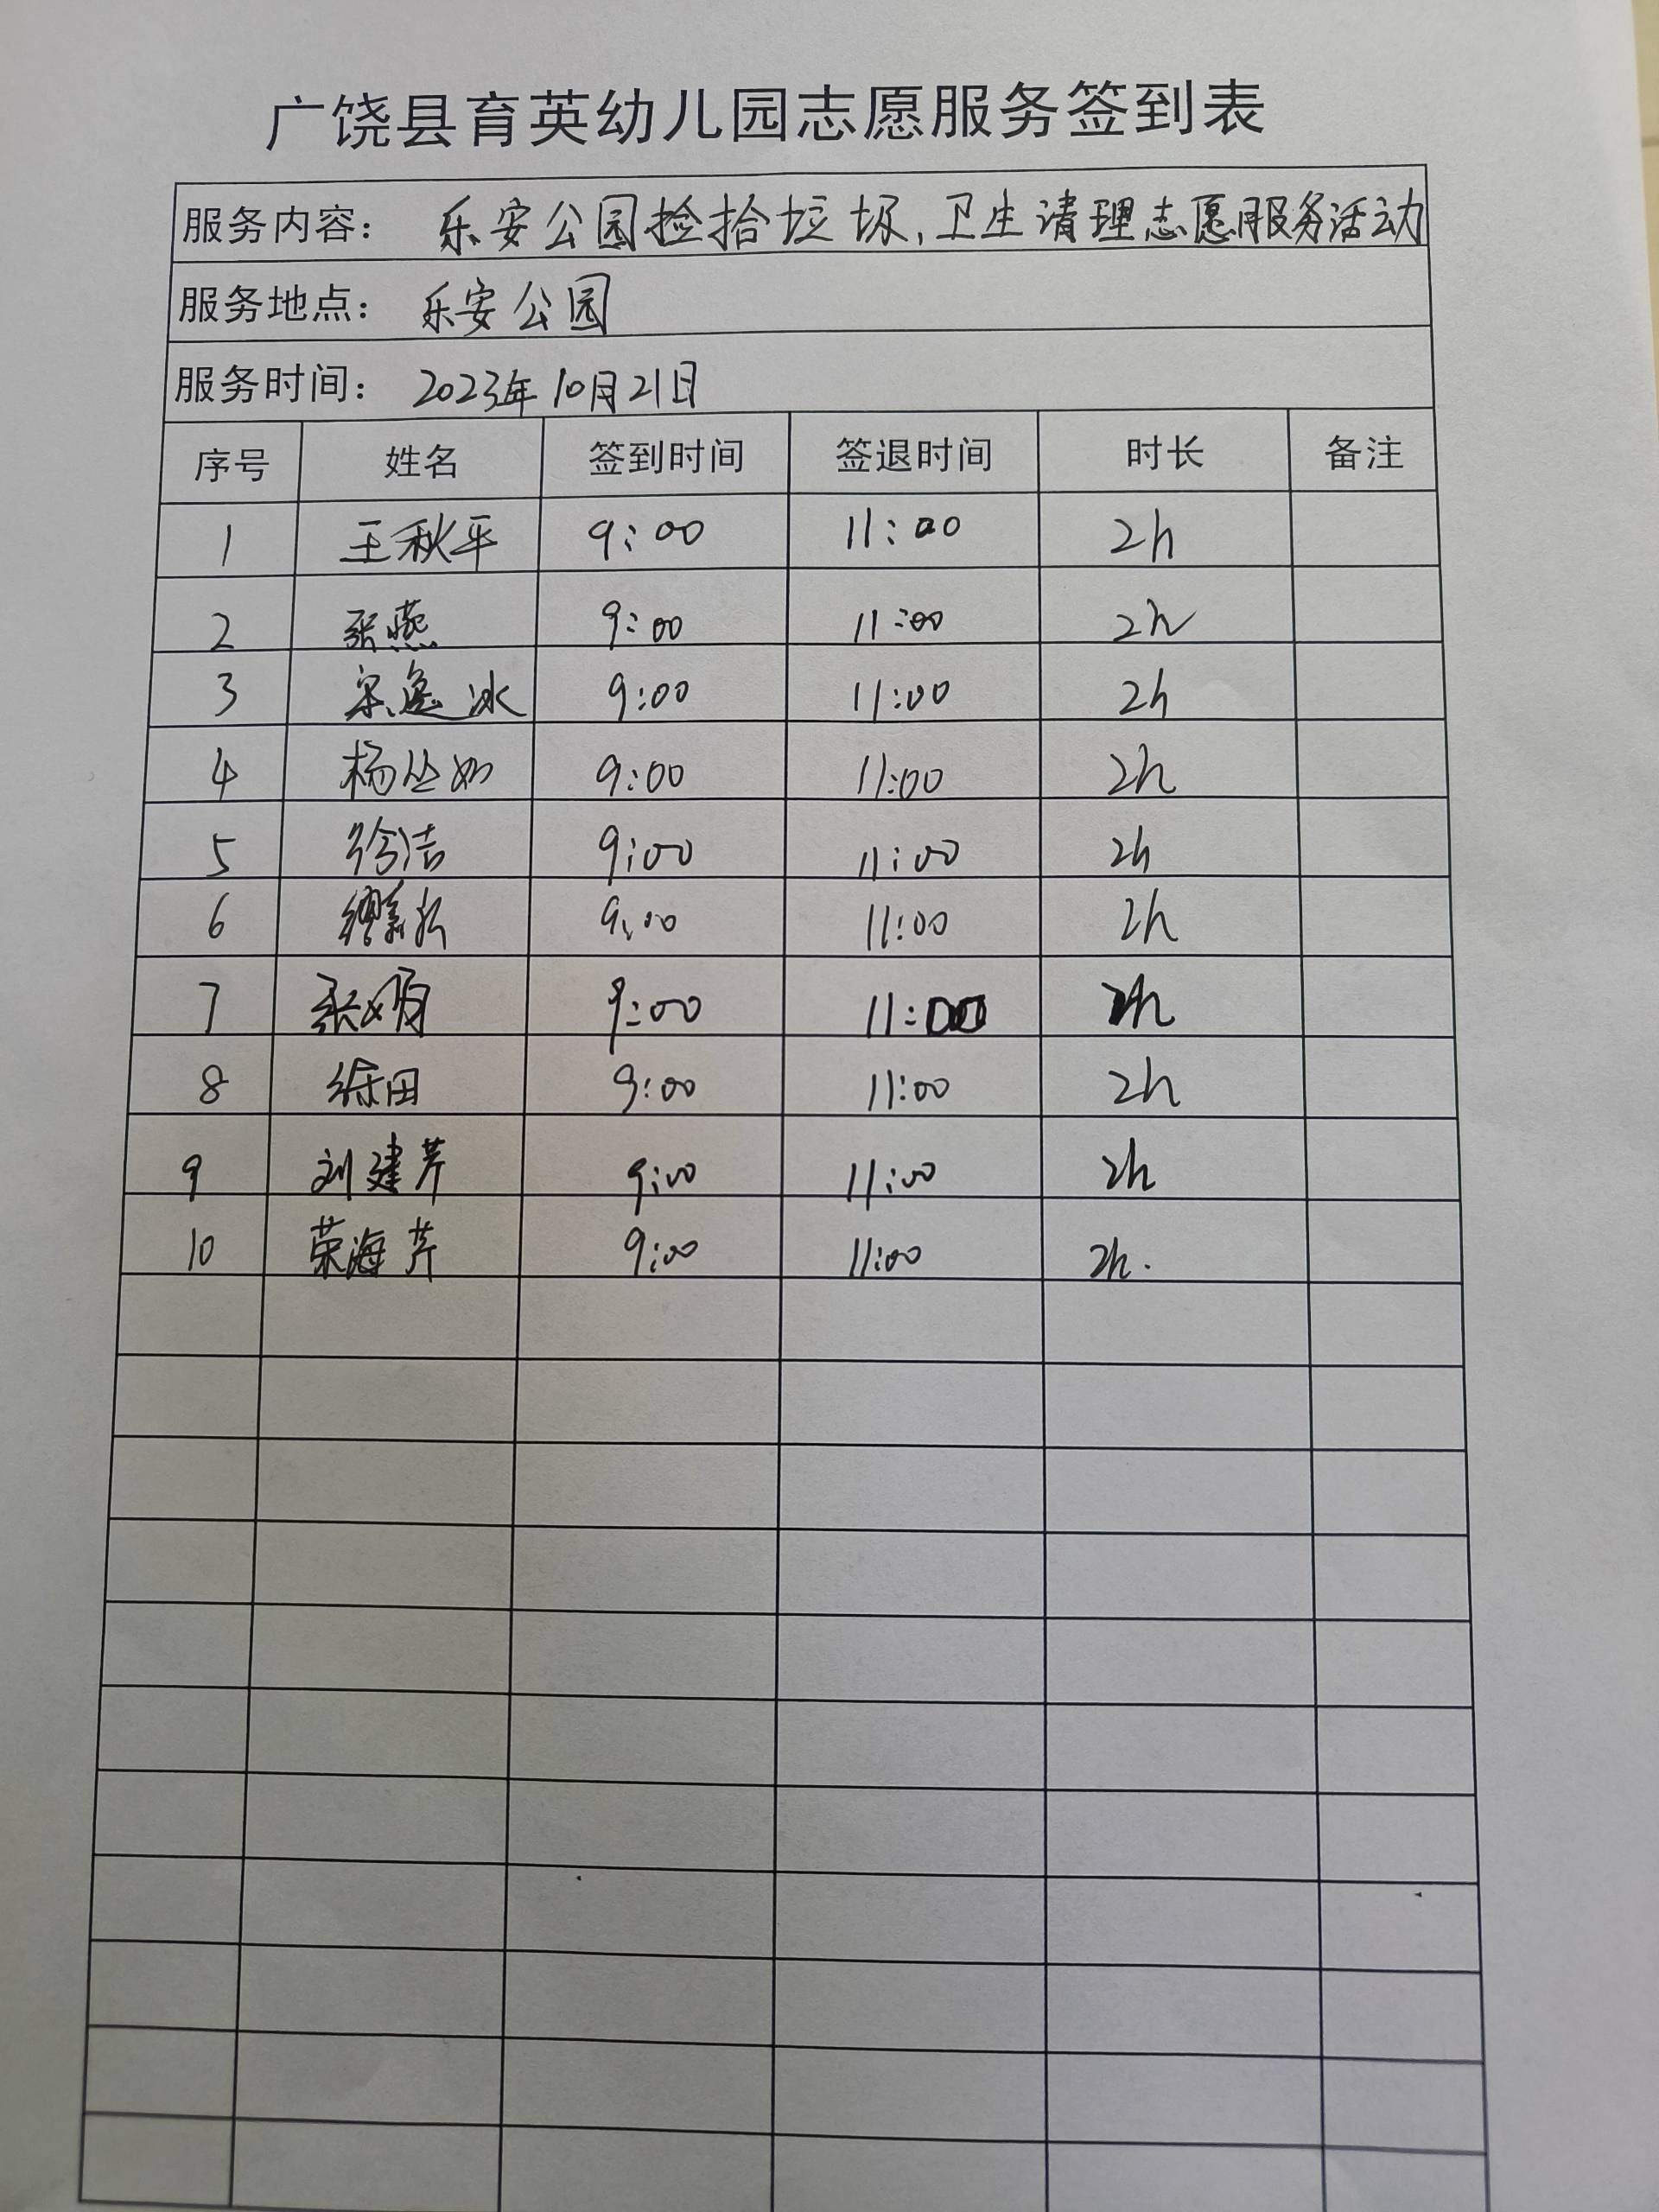 广饶县育英幼儿园志愿服务签到表
服务内容： 乐安公园捡拾垃圾、卫生清理志愿服务活动
服务地点： 乐安公园
服务时间： 2023年10月21日
序号 姓名 签到时间 签退时间 时长 备注
1 王秋平 9:00 11:00 2h
2 张燕 9:00 11:00 2h
3 宋逸冰 9:00 11:00 2h
4 杨丛如 9:00 11:00 2h
5 徐洁 9:00 11:00 2h
6 9:00 11:00 2h
7 9:00 11:00 2h
8 徐田 9:00 11:00 2h
9 刘建芹 9:00 11:00 2h
10 荣海芹 9:00 11:00 2h.